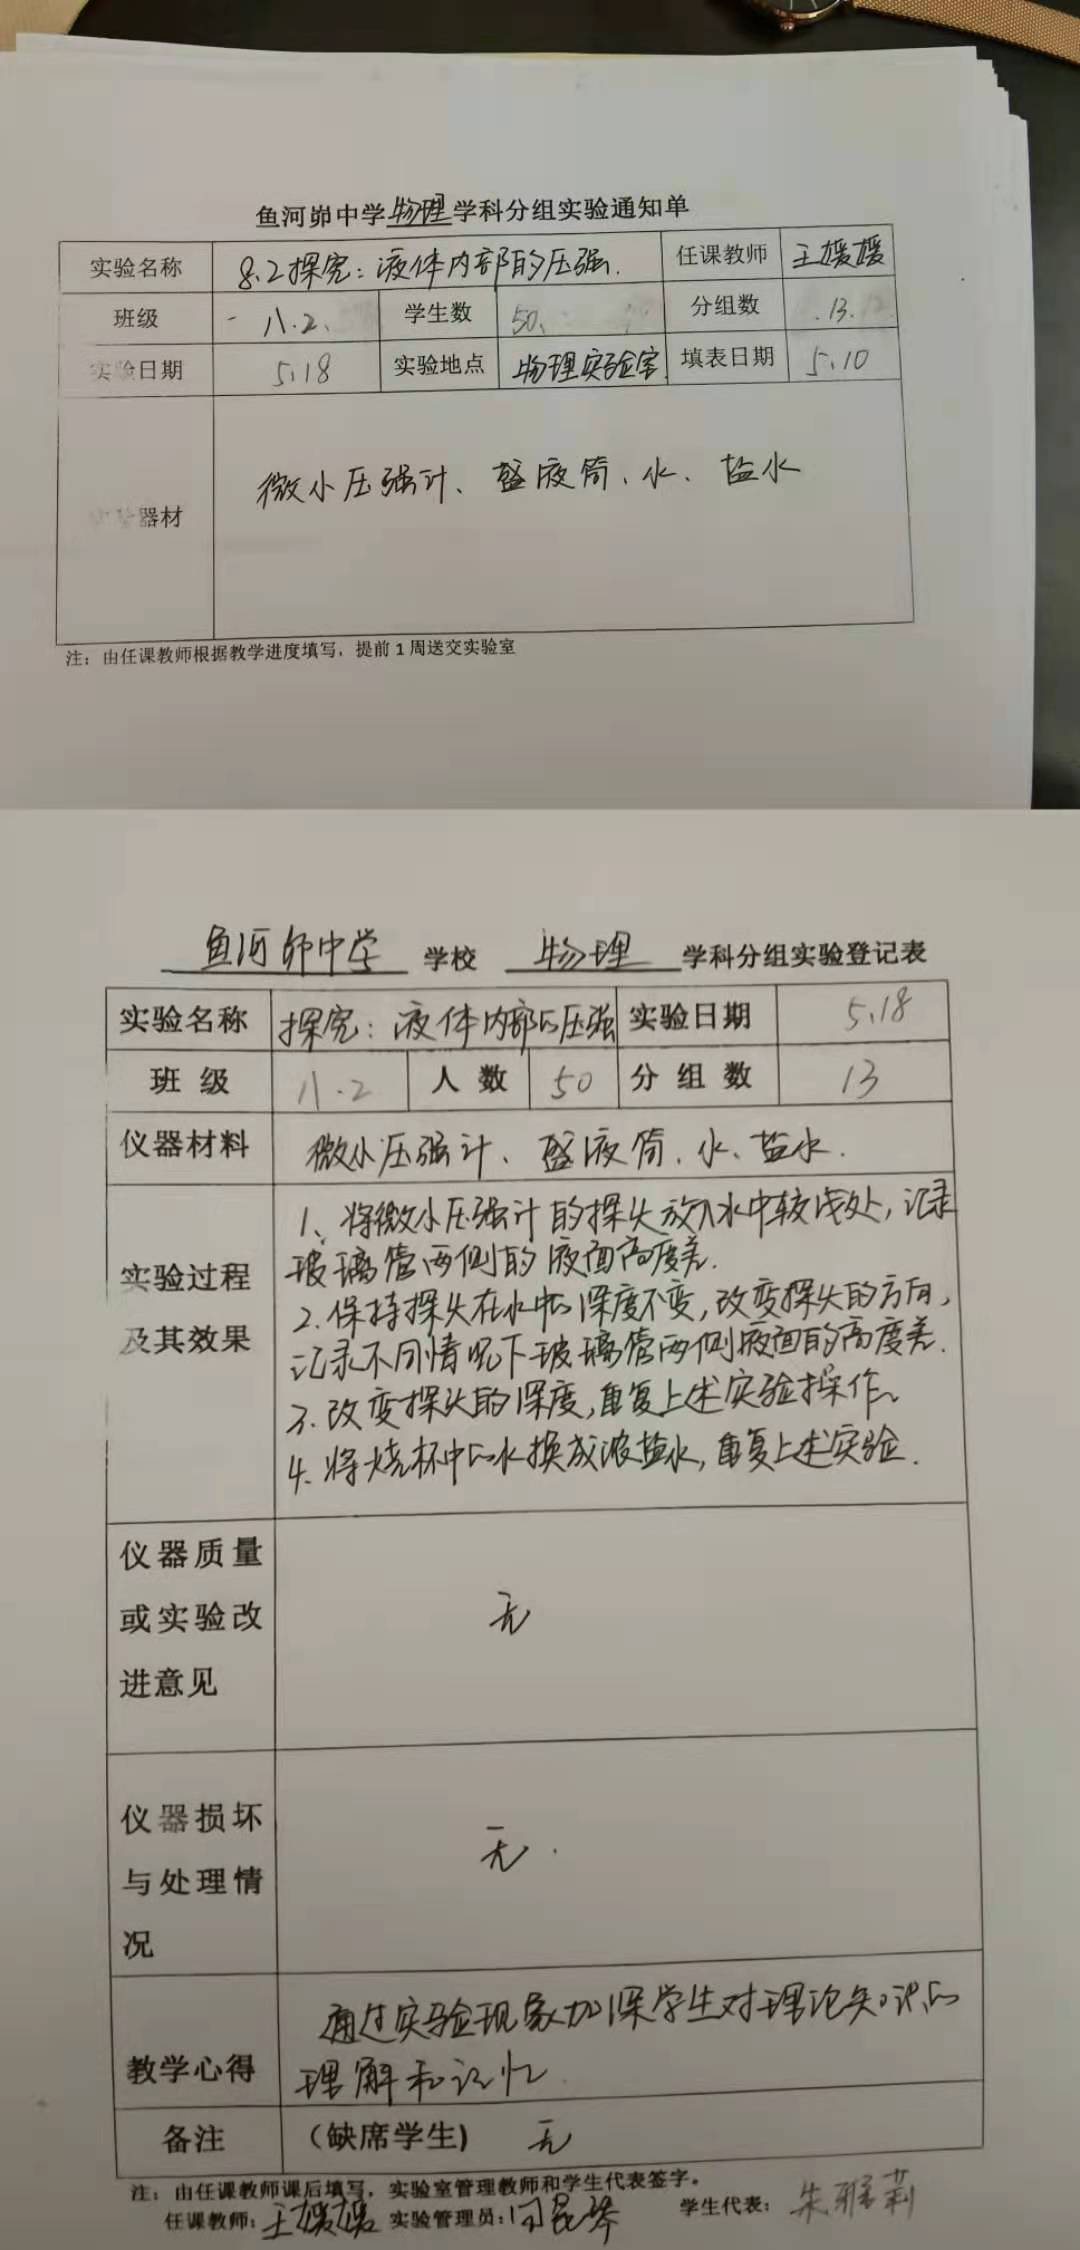 鱼河峁中学物理学科分组实验通知单
实验名称 8.2探究：液体内部的压强. 任课教师 王媛媛
班级 八.2. 学生数 50. 分组数 13.
实验日期 5.18 实验地点 物理实验室 填表日期 5.10
器材 微小压强计、盛液筒、水、盐水
注：由任课教师根据教学进度填写，提前1周送交实验室
鱼河峁中学 学校 物理 学科分组实验登记表
实验名称 探究：液体内部的压强 实验日期 5.18
班级 八.2 人数 50 分组数 13
仪器材料 微小压强计、盛液筒、水、盐水.
实验过程及其效果
1、将微小压强计的探头放入水中较浅处，记录
玻璃管两侧的液面高度差.
2.保持探头在水中的深度不变，改变探头的方向，
记录不同情况下玻璃管两侧液面的高度差.
3.改变探头的深度，重复上述实验操作。
4.将烧杯中的水换成浓盐水，重复上述实验.
仪器质量
或实验改
进意见
无
仪器损坏
与处理情
况
无.
教学心得
通过实验现象加深学生对理论知识的
理解和记忆.
备注 （缺席学生） 无
注：由任课教师课后填写，实验室管理教师和学生代表签字。
任课教师：王媛媛 实验管理员： 学生代表：